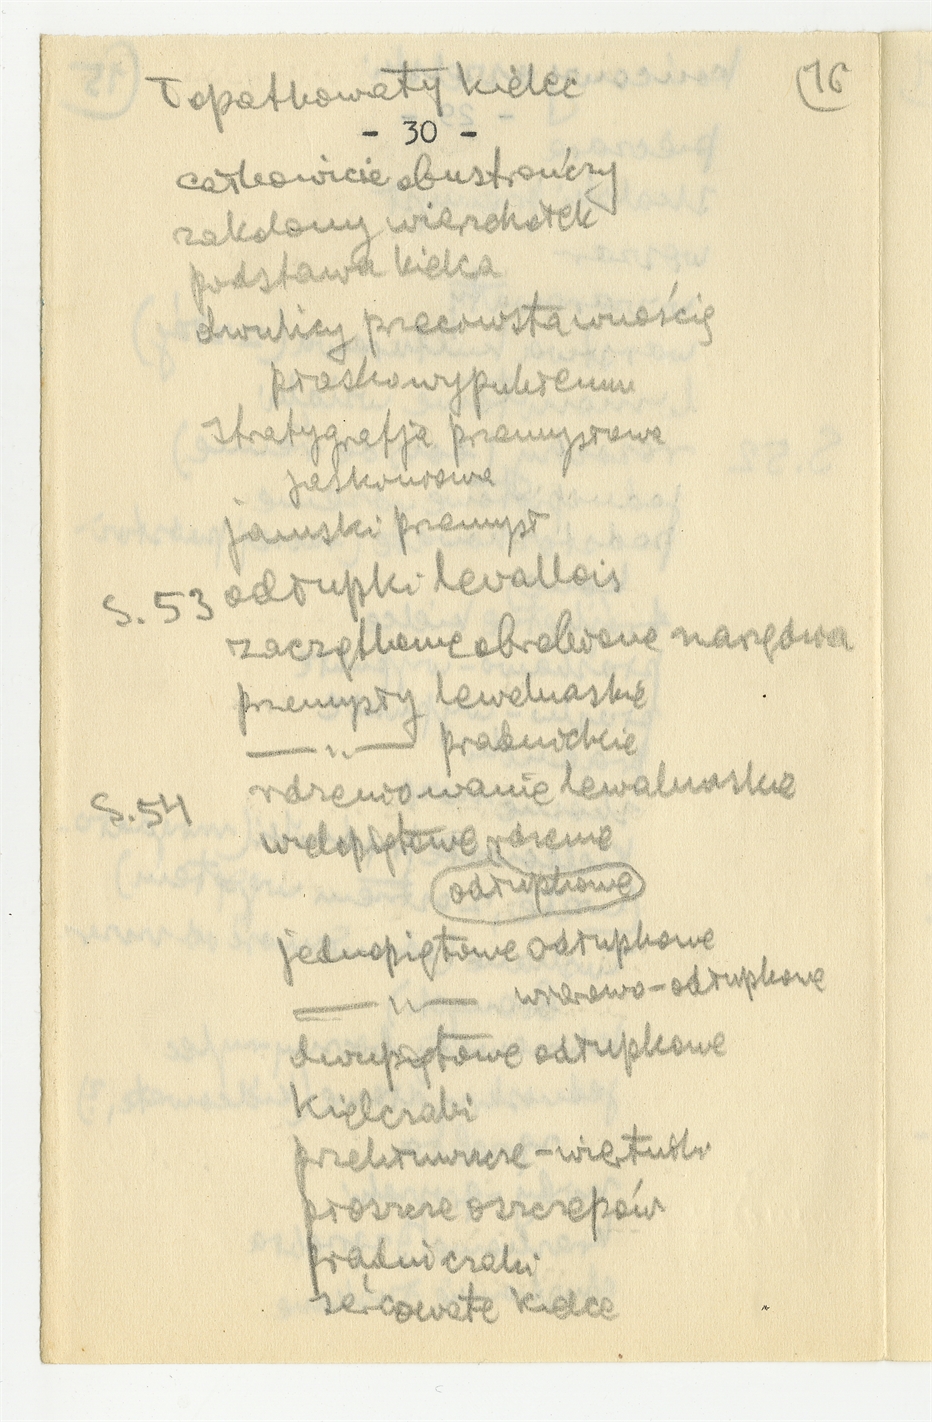 Łopatkowaty kielec
76
- 30 -
całkowicie obustrończy
zakolony wierzchołek
podstawa kielca
dwulicy przeciwstawnością
płaskowypukłemu
Stratygrafja przemysłowa
jaskiniowa
jamski przemysł
S.53 odłupki levallois
zaczątkowe obrobione narzędzia
przemysły lewaluaskie
— „ — prądnickie
rdzeniowanie lewaluaskie
S.54
wielopiętowe rdzenie
odłupkowe
jednopiętowe odłupkowe
— „ — wiórowo-odłupkowe
dwupiętowe odłupkowe
kielczaki
przekłuwacze - wiertniki
płoszcze oszczepów
prądniczaki
sercowate kielce